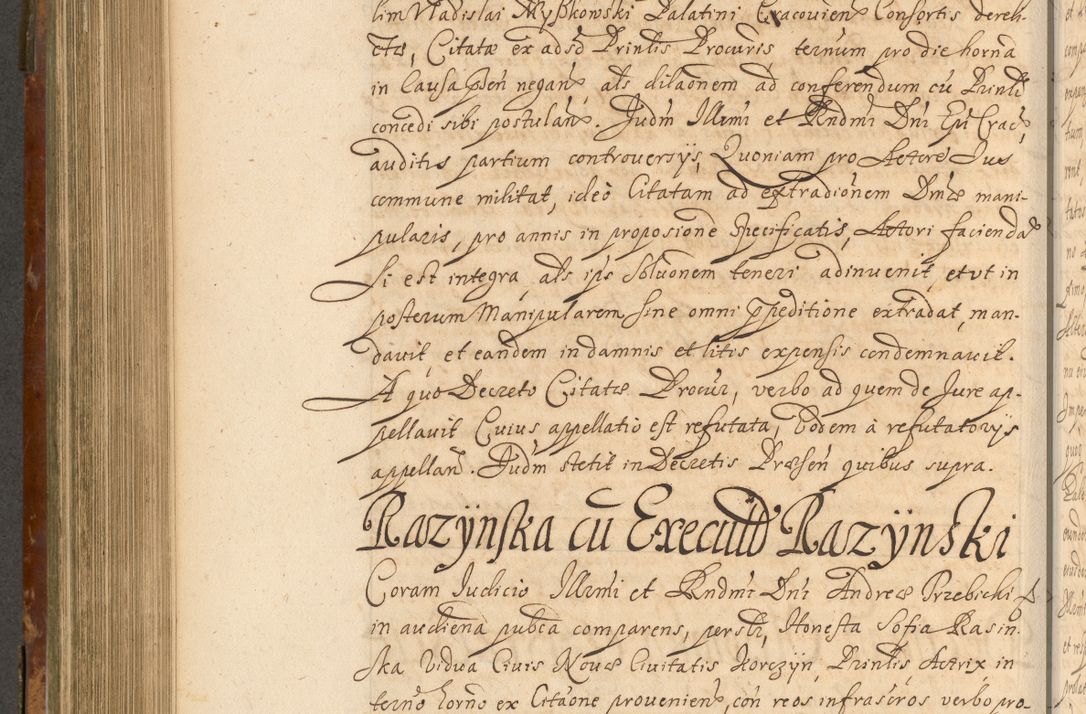 lim Vladislai Myßkowski Palatini Cracovien Consortis dereli-
ctæ, Citatæ ex adsd Prinlis Procuris ternum pro die horna
in Causa pñti negañ als dilaõnem ad conferendum cũ Prinli
concedi sibi postulañ. Judm Illrmi et Rndmi Dni Epi Crac,
auditis partium controversijs, Quoniam pro Actore Jus
commune militat, ideò Citatam ad extradiõnem Dmæ mani-
pularis, pro annis in proposiõne specificatis, Actori faciendã
Si est integra, als ips solvõnem teneri adinvenit et ut in
posterum Manipularem sine omni ppeditione extradat, man-
davit et eandem in damnis et litis expensis condemnavit.
A quo Decreto Citatæ Procur, verbo ad quem de Jure ap-
pellavit Cuius appellatio est refutata, Eodem à refutatorijs
appellañ. Judm stetit in Decretis Præseñ quibus supra.
Razÿnska cũ Execultd Razÿnski
Coram Judicio Illrmi et Rndmi Dni Andreæ Trzebicki E
in audiena pubca comparens, persli, Honesta Sofia Rasin-
ska Vidua Civis Novæ Civitatis Korczÿn, Prinlis Actrix in
termo horno ex Citaõne provenien, coñ reos infrascros verbo pro-